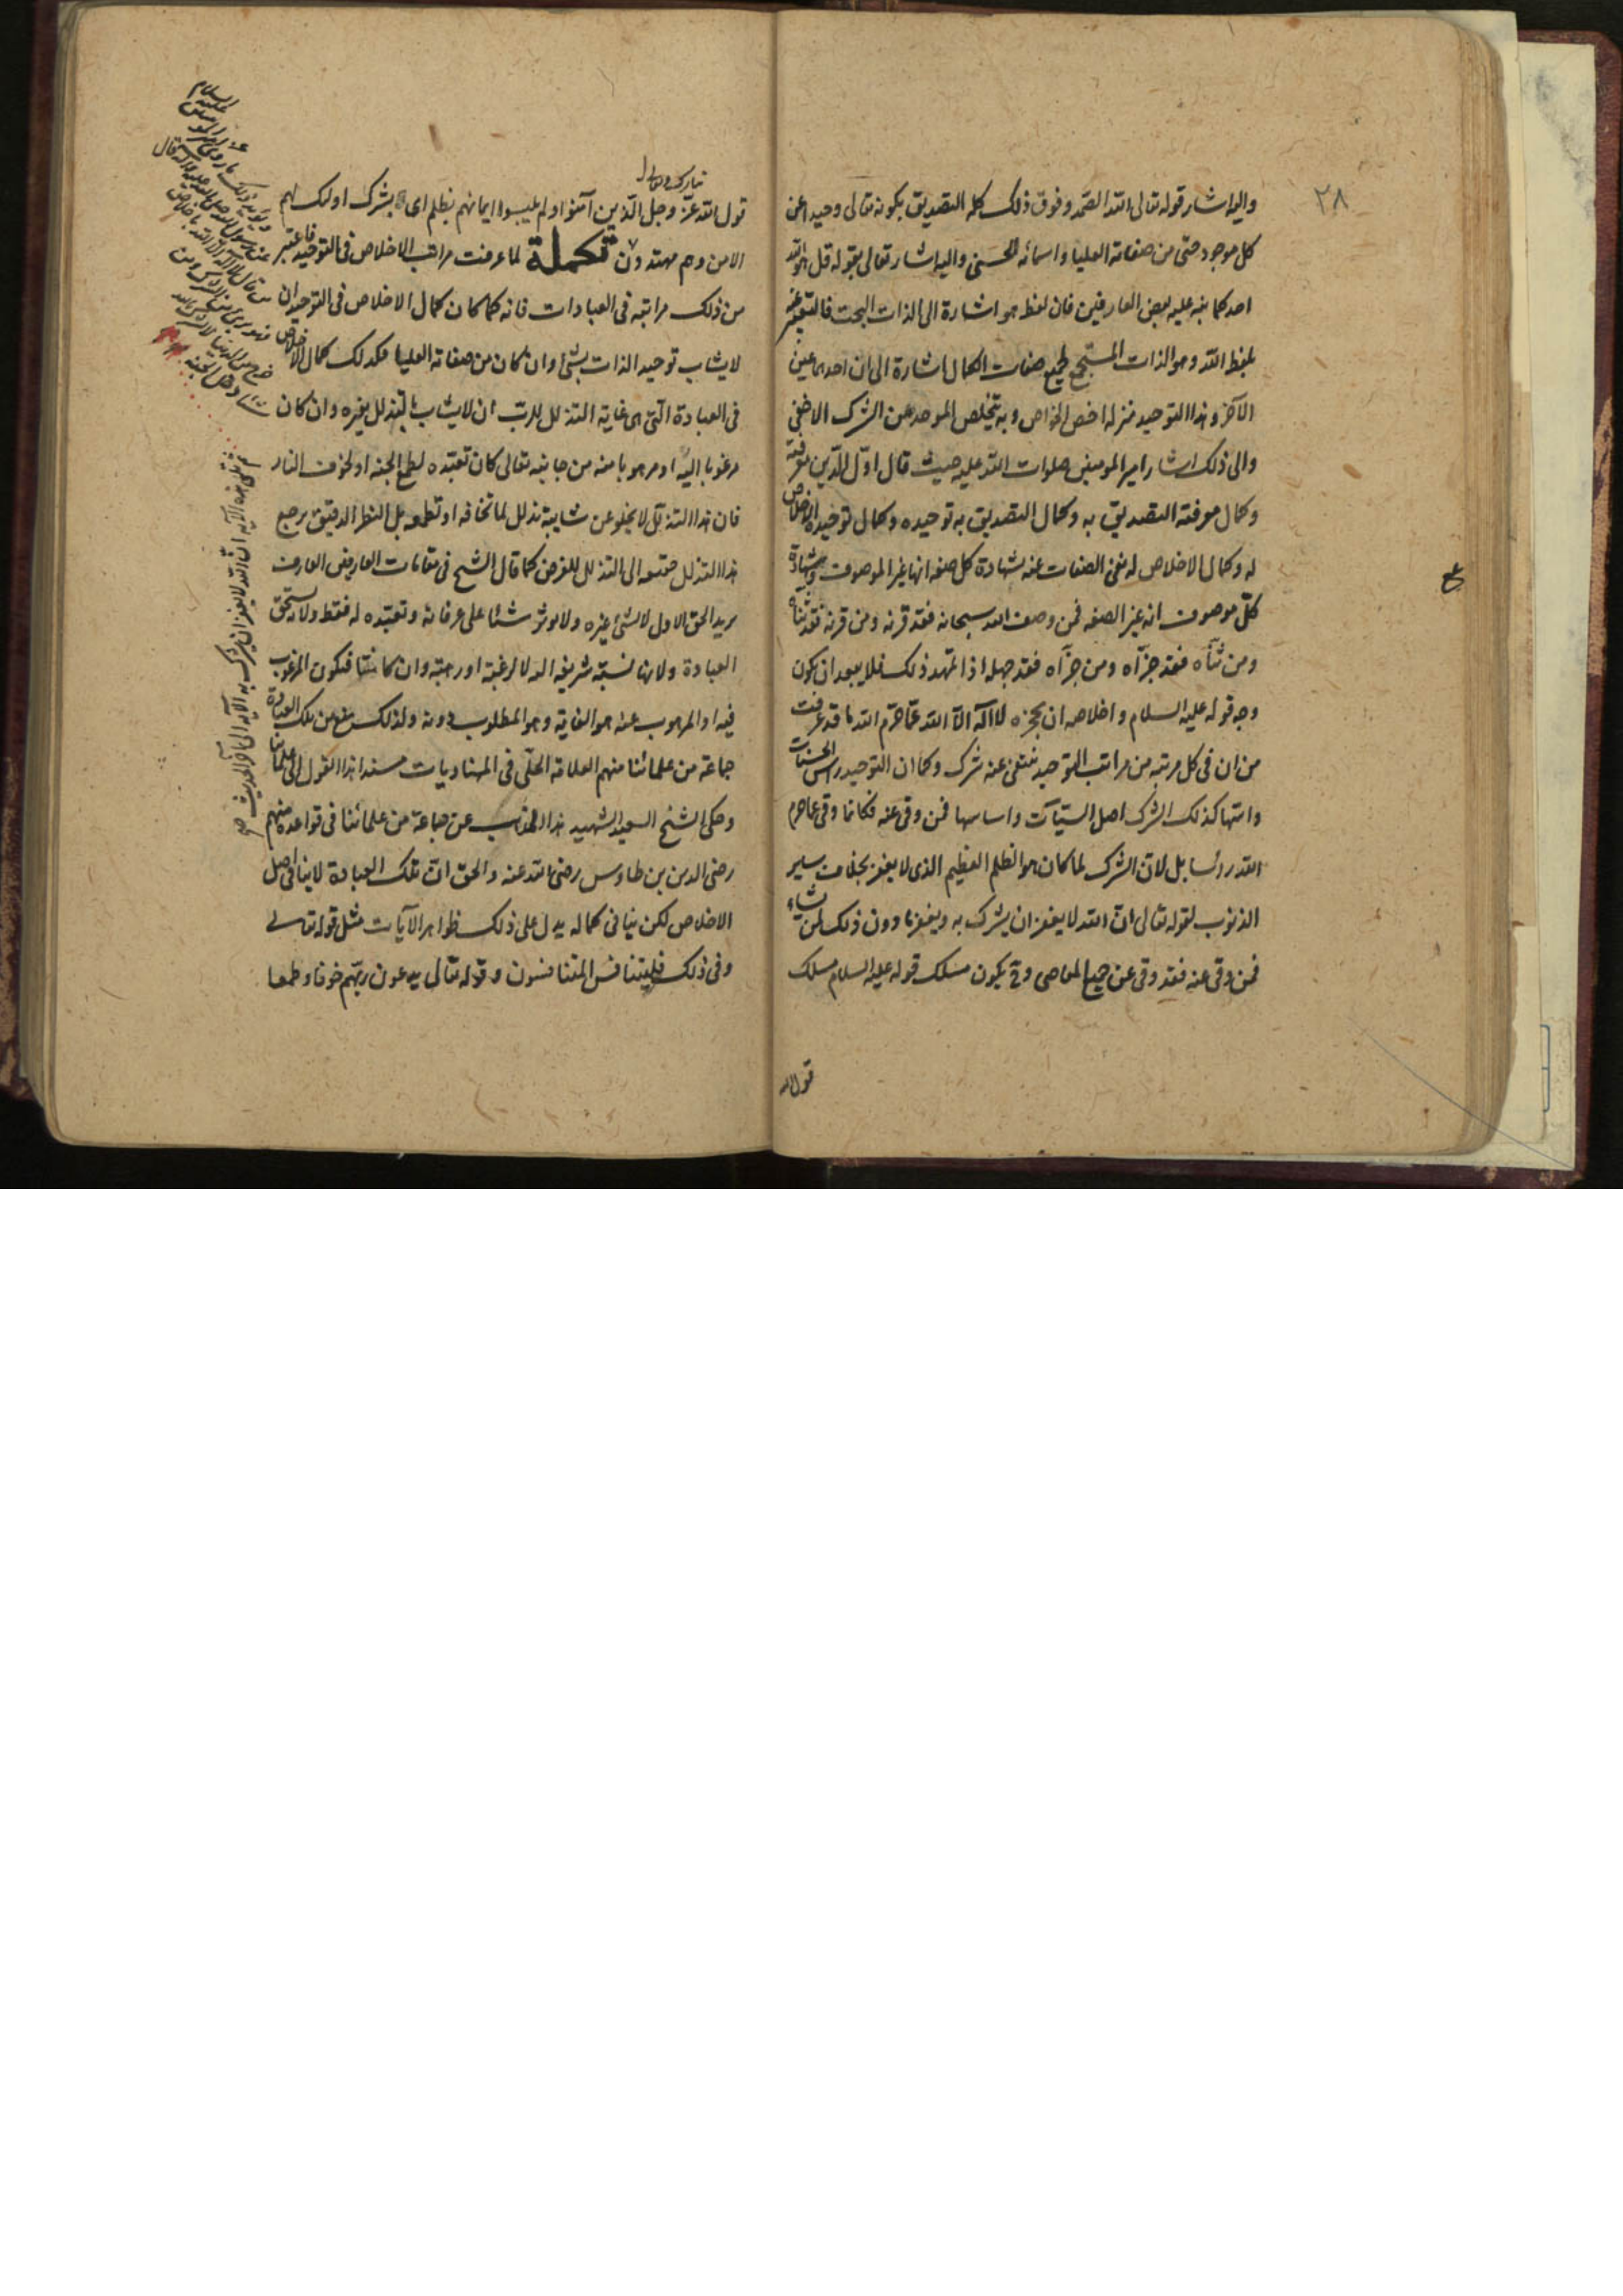 ٢٨
واليه اشار قوله تعالى الله الصمد وفوق ذلك كله التصديق بكونه تعالى وحيدا عن
كل موجود حتى من صفاته العليا واسمائه الحسنى واليه اشار تعالى بقوله قل هو الله
احد كما نبه عليه بعض العارفين فان لفظ هو اشارة الى الذات البحت فالتعبير عنه
بلفظ الله وهو الذات المستجمع لجميع صفات الكمال اشارة الى ان احدهما عين
الآخر وهذا التوحيد منزلة اخص الخواص وبه يتخلص الموحد عن الشرك الاخفى
والى ذلك اشار امير المومنين صلوات الله عليه حيث قال اوّل الدّين معرفته
وكمال معرفته التصديق به وكمال التصديق به توحيده وكمال توحيده الاخلاص
له وكمال الاخلاص له نفى الصفات عنه لشهادة كل صفة انها غير الموصوف وشهادة
كلّ موصوف انه غير الصفه فمن وصف الله سبحانه فقد قرنه ومن قرنه فقد ثنّاه
ومن ثنّاه فقد جزّاه ومن جزّاه فقد جهله اذا تمهد ذلك فلا يبعد ان يكون
وجه قوله عليه السلام واخلاصه ان يحجزه لا اله الّا الله عمّا حرّم الله ما قد عرفت
من ان فى كل مرتبه من مراتب التوحيد ينتفى عنه شرك وكما ان التوحيد راس الحسنات
واسّها كذلك الشرك اصل السيّآت واساسها فمن وقى عنه فكانما وقى عما حرم
الله راسا بل لانّ الشرك لما كان هو الظلم العظيم الذى لا يغفر بخلاف سير
الذنوب لقوله تعالى انّ الله لا يغفر ان يشرك به ويغفر ما دون ذلك لمن يشاء
فمن وقى عنه فقد وقى عن جميع المعاصى وح يكون مسلك قوله عليه السلام مسلك
قول الله
تبارك وتعالى
قول الله عزّ وجل الّذين آمنوا ولم يلبسوا ايمانهم بظلم اى بشرك اولئك لهم
الامن وهم مهتدون تكملة لما عرفت مراتب الاخلاص فى التوحيد فاعتبر
من ذلك مراتبه فى العبادات فانه كما كان كمال الاخلاص فى التوحيد ان
لا يشاب توحيد الذات بشئ وان كان من صفاته العليا فكذلك كمال الاخلاص
فى العبادة الّتى هى غاية التذلل للربّ ان لا يشاب بالتذلل لغيره وان كان
مرغوبا اليه او مرهوبا منه من جانبه تعالى كان تعبّده لطمع الجنه او لخوف النار
فان هذا التذلّل لا يخلو عن شايبة تذلل لما تخافه او تطمعه بل النظر الدقيق يرجع
هذا التذلل حقيقه الى التذلل للغرض كما قال الشيخ فى مقامات العارفين العارف
يريد الحق الاول لا لشئ غيره ولا يوثر شيئا على عرفانه وتعبّده له فقط ولانه مستحق
العبادة ولانها نسبة شريفه اليه لا لرغبة او رهبة وان كانتا فيكون المرغوب
فيه او المرهوب عنه هو الغاية وهو المطلوب دونه ولذلك منع من تلك العبادة
جماعة من علمائنا منهم العلامة الحلّى فى المهناويات مسندا هذا القول الى علمائنا
وحكى الشيخ السعيد الشهيد هذا المذهب عن جماعة من علمائنا فى قواعده منهم
رضى الدين بن طاوس رضى الله عنه والحق انّ تلك العبادة لا ينافى اصل
الاخلاص لكن ينافى كماله يدل على ذلك ظواهر الآيات مثل قوله تعالى
وفى ذلك فليتنافس المتنافسون وقوله تعالى يدعون ربّهم خوفا وطمعا
السلام
من قال لا اله الا الله باخلاص
هذه الآيه انّ الله لا يغفر ان يشرك به الآيه الى آخر الحديث صح